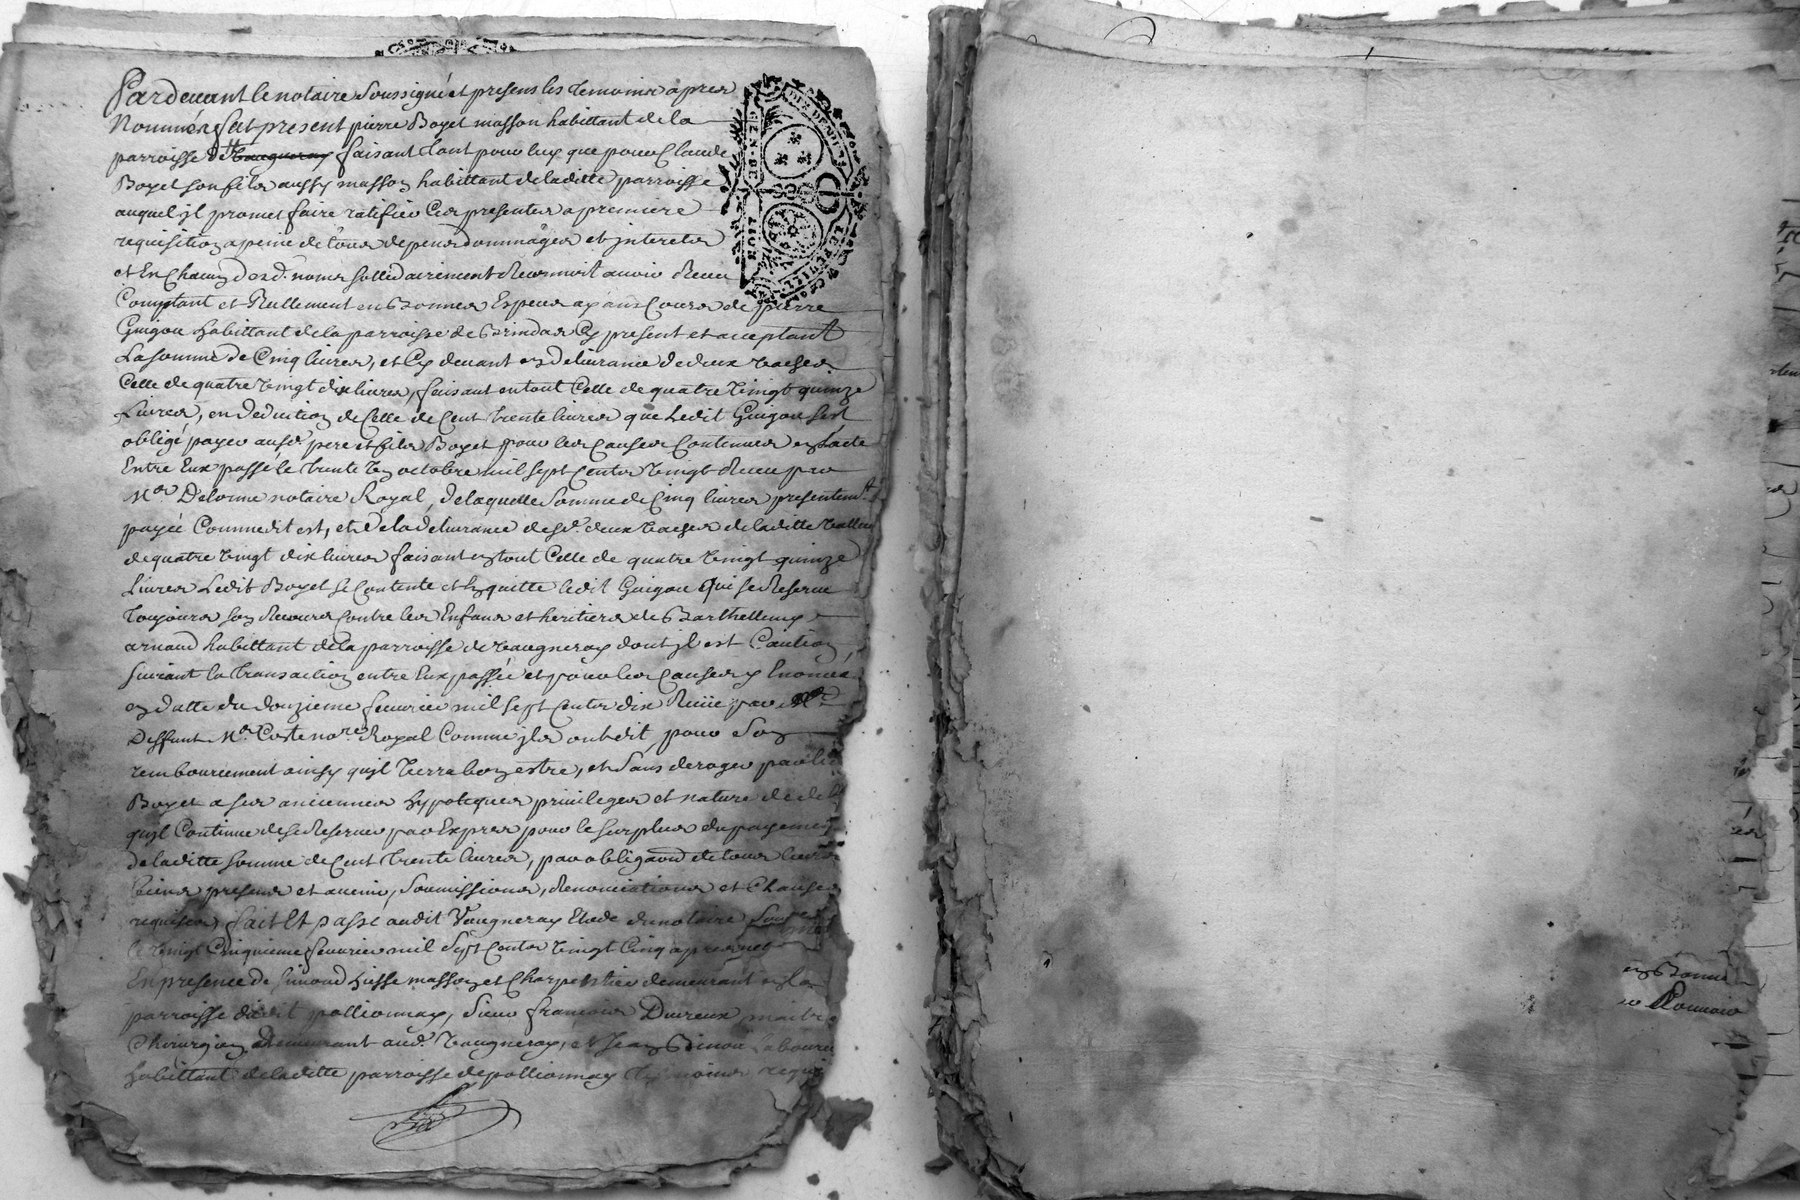 Pardevant le notaire soussigné et presens les temoins apres
Nommés fut present pierre Boyet masson habittant de la
parroisse de Vaugneray faisant tant pour luy que pour Claude
Boyet son fils aussy masson habittant de laditte parroisse
auquel il promet faire ratifier Ces presentes a premiere
requisition a peine de tous depens dommages et interets
et En Chacun desd. noms sollidairement Reconnoit avoir Receu
Comptant et Rellement en Bonnes Especes ayans Cours de pierre
Guigou habittant de la parroisse de Brindas Cy present et acceptant
La somme de Cinq livres, et Cy devant en delivrance de deux vaches
Celle de quatre vingt dix livres, faisant en tout Celle de quatre vingt quinze
Livres, en deduction de Celle de Cent trente livres que Ledit Guigou sest
obligé payer ausd. pere et fils Boyet pour les Causes Contenues en Lacte
Entre Eux passé le trente un octobre mil sept Cents vingt Receu par
Me. Delorme notaire Royal, de laquelle somme de Cinq livres presentemt.
payée Comme dit est, et de la delivrance desd. deux vaches de laditte valleur
de quatre vingt dix livres faisant en tout Celle de quatre vingt quinze
Livres Ledit Boyet se Contente et En quitte ledit Guigou Qui se Reserve
toujours son Recours Contre les Enfans et heritiers de Barthellemy
arnaud habittant de la parroisse de Vaugneray dont il est Caution
suivant la transaction entre Eux passée et pour les Causes y Enoncées
en datte du douzieme fevrier mil sept Cents dix Receue par
Deffunt Me. Coste nore. Royal Comme ils ont dit, pour Son
rembourcement ainsy quil verra bon estre, et sans deroger par led.
Boyet a ses anciennes hypoteques privileges et nature de
quil Continue de se Reserver par Expres pour le surplus du payement
de laditte somme de Cent trente livres, par obligaon. de tous leurs
biens presens et avenir, soumissions, Renonciations et Clauses
requises, fait Et passé audit Vaugneray Etude du notaire
le vingt Cinquieme fevrier mil sept Cents vingt Cinq apres
En presence de masson et Charpentier demeurant en la
parroisse dudit pollionnay, sieur francois Duvreux, maitre
Chirurgien demeurant aud. Vaugneray, et Jean laboureur
habittant de laditte parroisse de pollionnay
GEN. DE
LYON
en Bonne